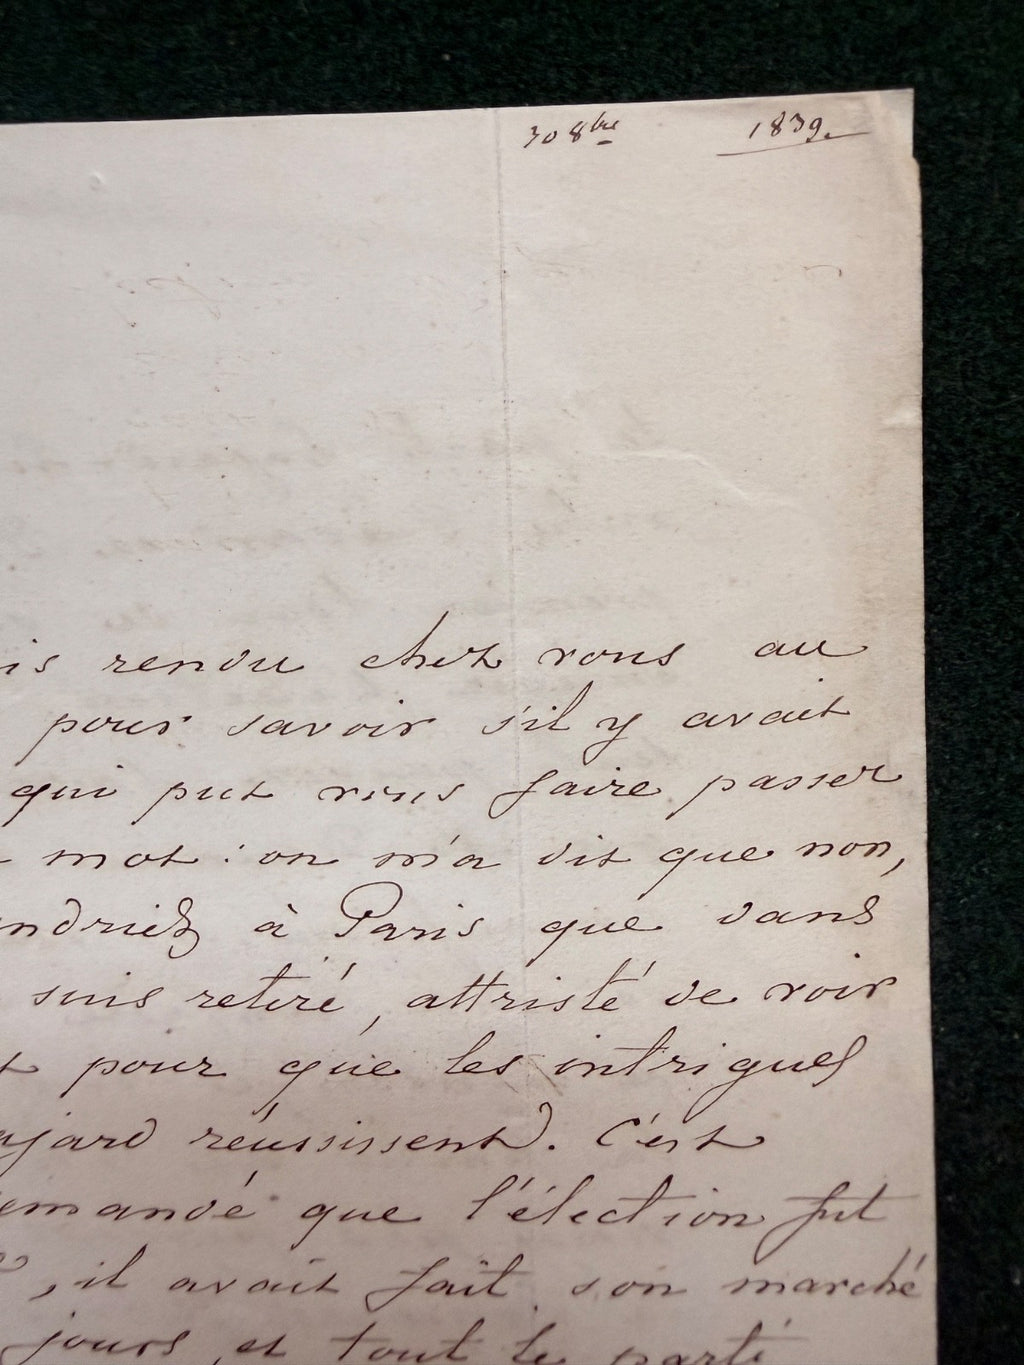 30 8bre 1839.
is rendu chez vous au
pour savoir s'il y avait
qui put vous faire passer
mot : on m'a dit que non,
ndriez à Paris que dans
suis retiré, attristé de voir
t pour que les intrigues
ajard réussissent. C'est
emandé que l'élection fut
, il avait fait son marché
jours, et tout le parti